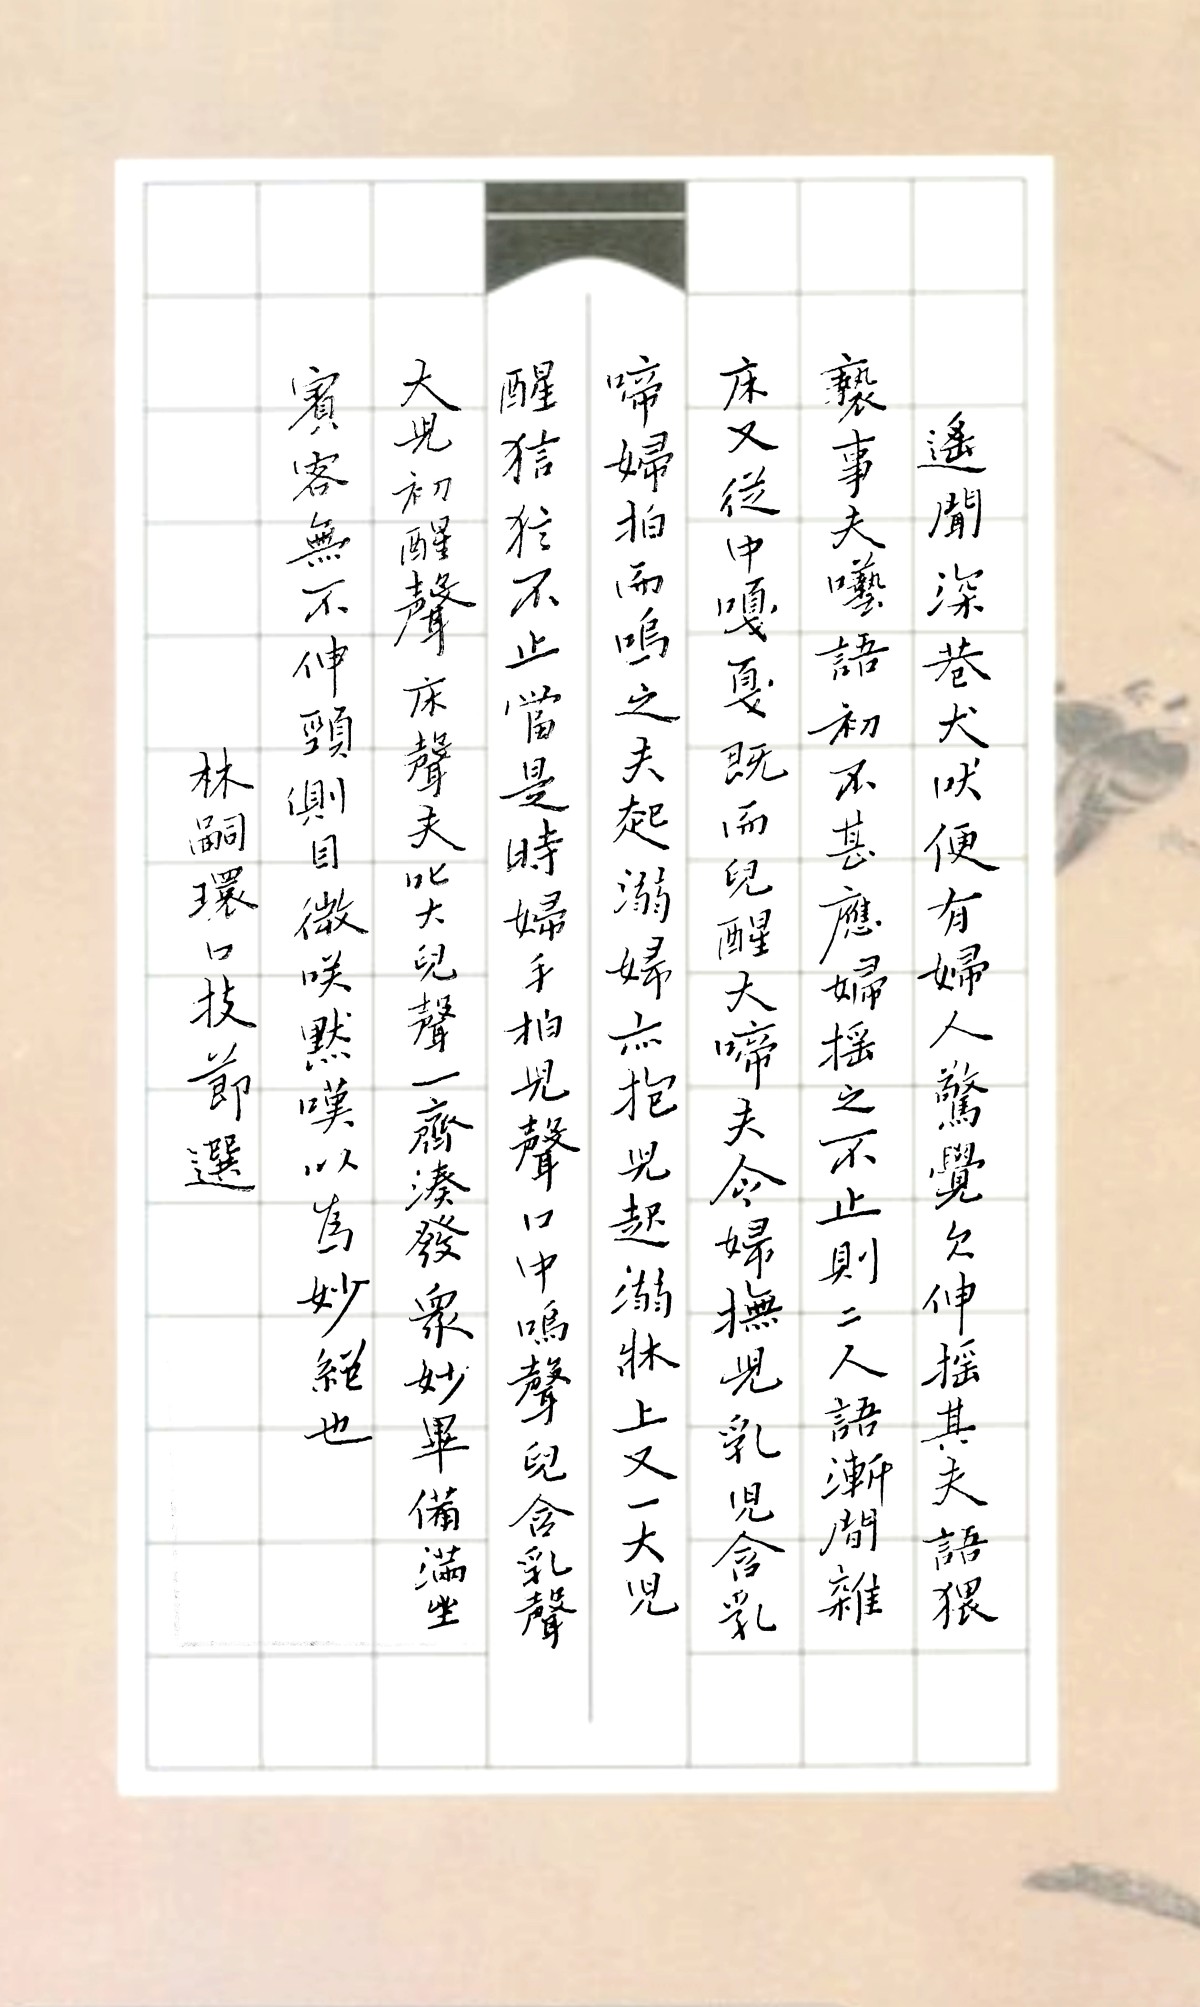 遙聞深巷犬吠便有婦人驚覺欠伸搖其夫語猥
褻事夫囈語初不甚應婦搖之不止則二人語漸間雜
床又從中嘎戛既而兒醒大啼夫令婦撫兒乳兒含乳
啼婦拍而嗚之夫起溺婦亦抱兒起溺牀上又一大兒
醒狺狺不止當是時婦手拍兒聲口中嗚聲兒含乳聲
大兒初醒聲床聲夫叱大兒聲一齊湊發衆妙畢備滿坐
賓客無不伸頸側目微咲默嘆以為妙絕也
林嗣環口技節選